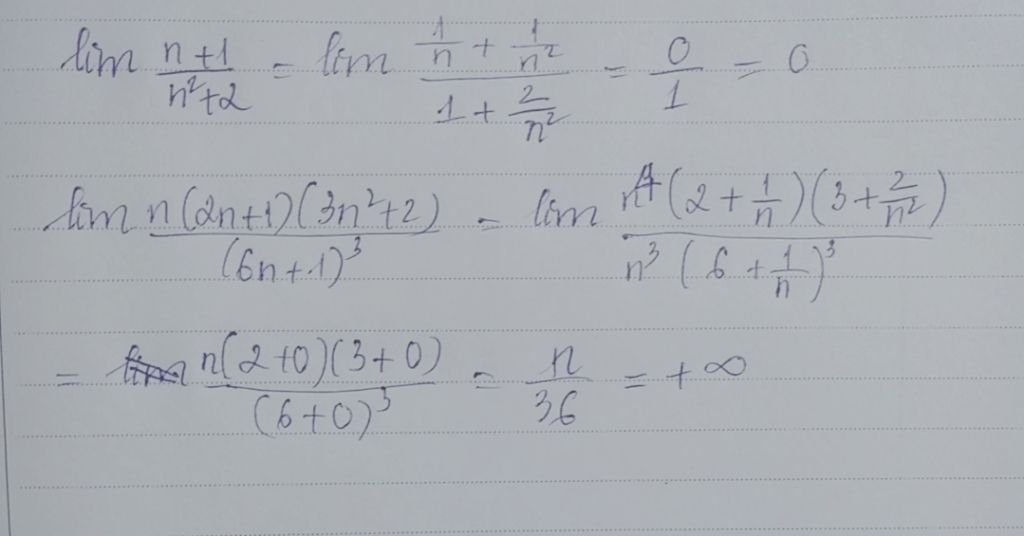 lim (n+1)/(n²+2) = lim (1/n + 1/n²)/(1 + 2/n²) = 0/1 = 0
lim n(2n+1)(3n²+2)/(6n+1)³ = lim n⁴(2 + 1/n)(3 + 2/n²)/n³(6 + 1/n)³
= n(2+0)(3+0)/(6+0)³ = n/36 = +∞